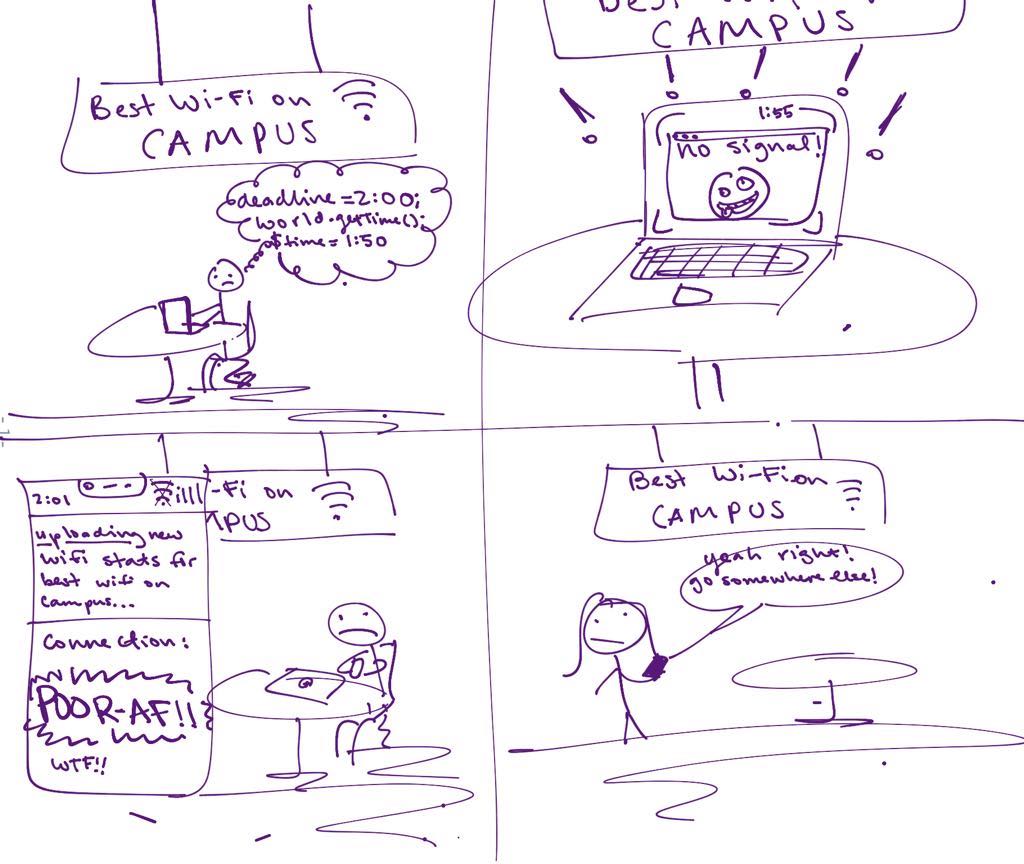 Best Wi-Fi on
CAMPUS
deadline = 2:00;
world.getTime();
$time = 1:50
CAMPUS
1:55
no signal!
2:01
uploading new
wifi stats for
best wifi on
campus...
Connection:
POOR-AF!!
WTF!!
-Fi on
PUS
Best Wi-Fi on
CAMPUS
yeah right!
go somewhere else!